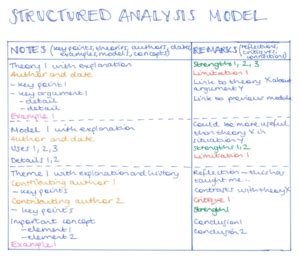 STRUCTURED ANALYSIS MODEL
NOTES (key points, theories, authors, dates, examples, models, concepts)
REMARKS (reflections, critiques, connections)
Theory 1 with explanation
Author and date
- key point 1
- key argument 1
- detail
- detail
Example 1
Strengths 1, 2, 3
Limitation 1
Link to theory X about
argument Y
Link to previous module
Model 1 with explanation
Author and date
Uses 1, 2
Details 1, 2
Could be more useful
than theory X in
situation Y
Strengths 1, 2
Limitation 1
Theme 1 with explanation and history
Contributing author 1
- key points
Contributing author 2
- key points
Important concept
- element 1
- element 2
Example 1
Reflection - this has
taught me...
Contrasts with theory X
Critique 1
Strength 1
Conclusion 1
Conclusion 2